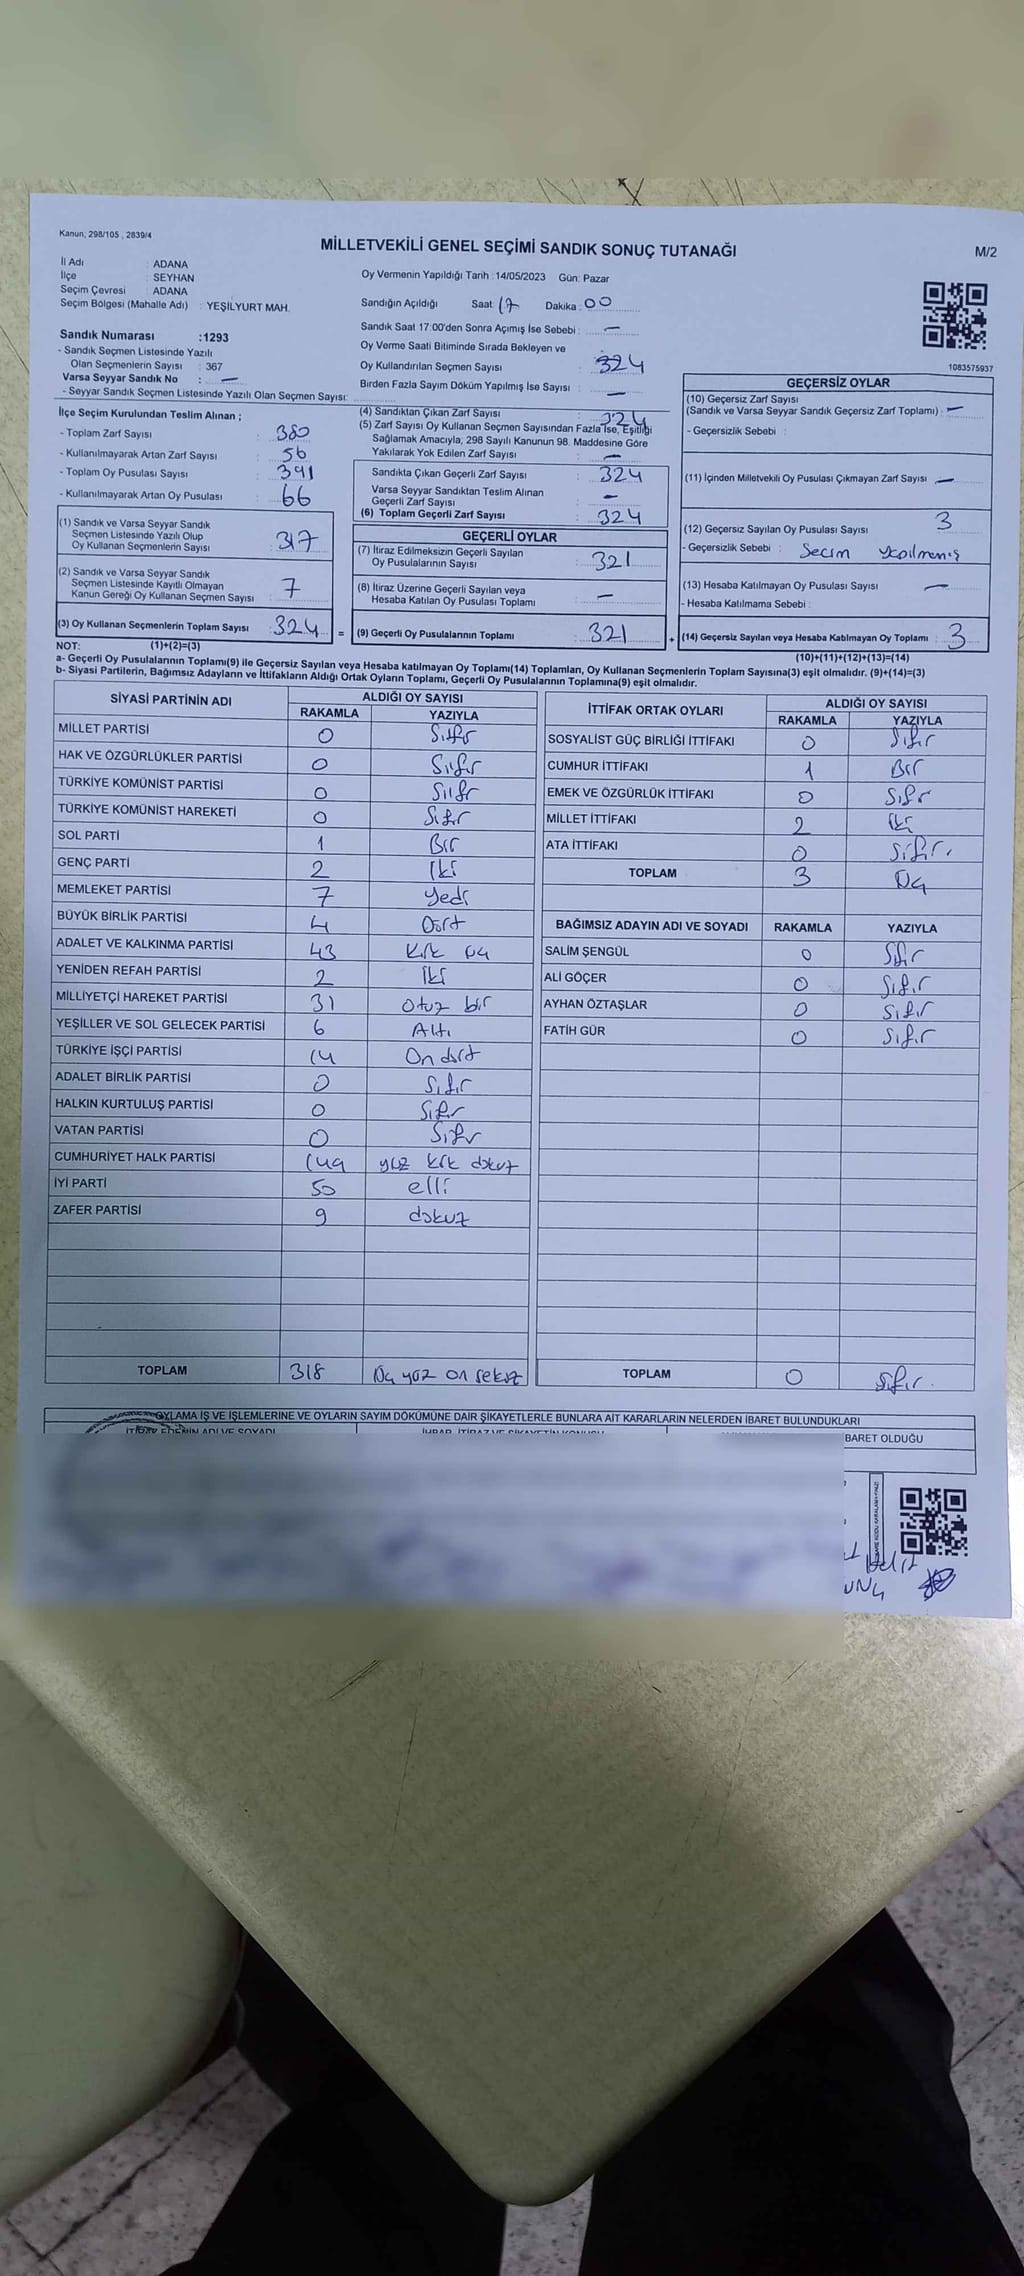 Kanun, 298/105 , 2839/4
MİLLETVEKİLİ GENEL SEÇİMİ SANDIK SONUÇ TUTANAĞI
M/2
İl Adı : ADANA
İlçe : SEYHAN
Seçim Çevresi : ADANA
Seçim Bölgesi (Mahalle Adı) : YEŞİLYURT MAH.
Oy Vermenin Yapıldığı Tarih :14/05/2023 Gün: Pazar
Sandığın Açıldığı Saat: 17 Dakika : 00
Sandık Saat 17:00'den Sonra Açımış İse Sebebi : —
Oy Verme Saati Bitiminde Sırada Bekleyen ve
Oy Kullandırılan Seçmen Sayısı : 324
Birden Fazla Sayım Döküm Yapılmış İse Sayısı : —
Sandık Numarası :1293
- Sandık Seçmen Listesinde Yazılı
Olan Seçmenlerin Sayısı : 367
Varsa Seyyar Sandık No : —
- Seyyar Sandık Seçmen Listesinde Yazılı Olan Seçmen Sayısı:
1083575937
İlçe Seçim Kurulundan Teslim Alınan ;
- Toplam Zarf Sayısı : 380
- Kullanılmayarak Artan Zarf Sayısı : 56
- Toplam Oy Pusulası Sayısı : 391
- Kullanılmayarak Artan Oy Pusulası : 66
(1) Sandık ve Varsa Seyyar Sandık
Seçmen Listesinde Yazılı Olup
Oy Kullanan Seçmenlerin Sayısı : 317
(2) Sandık ve Varsa Seyyar Sandık
Seçmen Listesinde Kayıtlı Olmayan
Kanun Gereği Oy Kullanan Seçmen Sayısı : 7
(3) Oy Kullanan Seçmenlerin Toplam Sayısı : 324 =
(4) Sandıktan Çıkan Zarf Sayısı : 324
(5) Zarf Sayısı Oy Kullanan Seçmen Sayısından Fazla İse, Eşitliği
Sağlamak Amacıyla, 298 Sayılı Kanunun 98. Maddesine Göre
Yakılarak Yok Edilen Zarf Sayısı : —
Sandıkta Çıkan Geçerli Zarf Sayısı : 324
Varsa Seyyar Sandıktan Teslim Alınan
Geçerli Zarf Sayısı : —
(6) Toplam Geçerli Zarf Sayısı : 324
GEÇERLİ OYLAR
(7) İtiraz Edilmeksizin Geçerli Sayılan
Oy Pusulalarının Sayısı : 321
(8) İtiraz Üzerine Geçerli Sayılan veya
Hesaba Katılan Oy Pusulası Toplamı : —
(9) Geçerli Oy Pusulalarının Toplamı : 321 +
GEÇERSİZ OYLAR
(10) Geçersiz Zarf Sayısı
(Sandık ve Varsa Seyyar Sandık Geçersiz Zarf Toplamı) : —
- Geçersizlik Sebebi :
(11) İçinden Milletvekili Oy Pusulası Çıkmayan Zarf Sayısı : —
(12) Geçersiz Sayılan Oy Pusulası Sayısı : 3
- Geçersizlik Sebebi : Secim yapılmamış
(13) Hesaba Katılmayan Oy Pusulası Sayısı : —
- Hesaba Katılmama Sebebi :
(14) Geçersiz Sayılan veya Hesaba Katılmayan Oy Toplamı : 3
NOT: (1)+(2)=(3)
(10)+(11)+(12)+(13)=(14)
a- Geçerli Oy Pusulalarının Toplamı(9) ile Geçersiz Sayılan veya Hesaba katılmayan Oy Toplamı(14) Toplamları, Oy Kullanan Seçmenlerin Toplam Sayısına(3) eşit olmalıdır. (9)+(14)=(3)
b- Siyasi Partilerin, Bağımsız Adayların ve İttifakların Aldığı Ortak Oyların Toplamı, Geçerli Oy Pusulalarının Toplamına(9) eşit olmalıdır.
SİYASİ PARTİNİN ADI ALDIĞI OY SAYISI
RAKAMLA YAZIYLA
MİLLET PARTİSİ 0 Sıfır
HAK VE ÖZGÜRLÜKLER PARTİSİ 0 Sıfır
TÜRKİYE KOMÜNİST PARTİSİ 0 Sıfır
TÜRKİYE KOMÜNİST HAREKETİ 0 Sıfır
SOL PARTİ 1 Bir
GENÇ PARTİ 2 İki
MEMLEKET PARTİSİ 7 Yedi
BÜYÜK BİRLİK PARTİSİ 4 Dört
ADALET VE KALKINMA PARTİSİ 43 Kırk Üç
YENİDEN REFAH PARTİSİ 2 İki
MİLLİYETÇİ HAREKET PARTİSİ 31 Otuz bir
YEŞİLLER VE SOL GELECEK PARTİSİ 6 Altı
TÜRKİYE İŞÇİ PARTİSİ 14 On dört
ADALET BİRLİK PARTİSİ 0 Sıfır
HALKIN KURTULUŞ PARTİSİ 0 Sıfır
VATAN PARTİSİ 0 Sıfır
CUMHURİYET HALK PARTİSİ 149 yüz kırk dokuz
İYİ PARTİ 50 elli
ZAFER PARTİSİ 9 dokuz
TOPLAM 318 Üç yüz on sekiz
İTTİFAK ORTAK OYLARI ALDIĞI OY SAYISI
RAKAMLA YAZIYLA
SOSYALİST GÜÇ BİRLİĞİ İTTİFAKI 0 Sıfır
CUMHUR İTTİFAKI 1 Bir
EMEK VE ÖZGÜRLÜK İTTİFAKI 0 Sıfır
MİLLET İTTİFAKI 2 İki
ATA İTTİFAKI 0 Sıfır.
TOPLAM 3 Üç
BAĞIMSIZ ADAYIN ADI VE SOYADI RAKAMLA YAZIYLA
SALİM ŞENGÜL 0 Sıfır
ALİ GÖÇER 0 Sıfır
AYHAN ÖZTAŞLAR 0 Sıfır
FATİH GÜR 0 Sıfır
TOPLAM 0 Sıfır.
OYLAMA İŞ VE İŞLEMLERİNE VE OYLARIN SAYIM DÖKÜMÜNE DAİR ŞİKAYETLERLE BUNLARA AİT KARARLARIN NELERDEN İBARET BULUNDUKLARI
İTİRAZ EDENİN ADI VE SOYADI İHBAR, İTİRAZ VE ŞİKAYETİN KONUSU BARET OLDUĞU